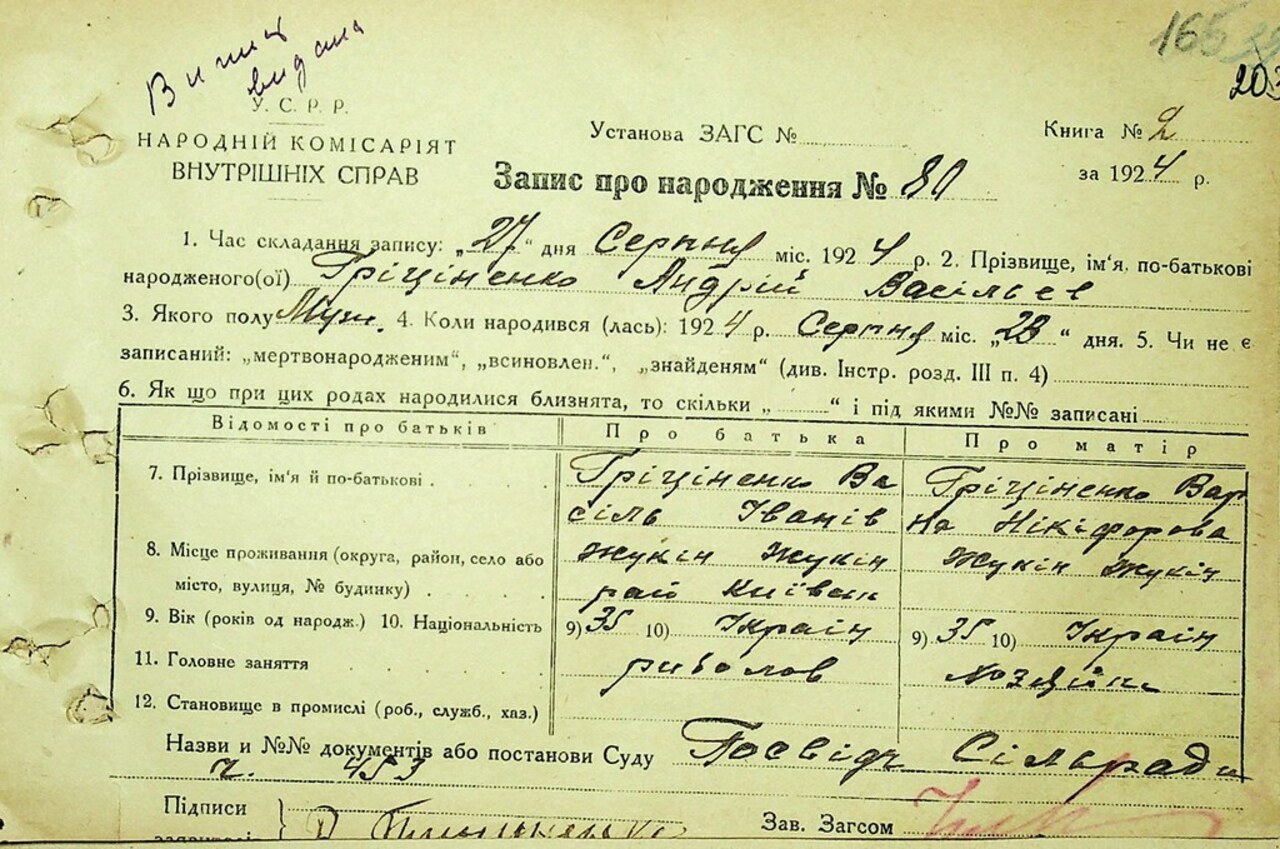 Витяг
видана
165
203
У. С. Р. Р.
НАРОДНІЙ КОМІСАРІЯТ
ВНУТРІШНІХ СПРАВ
Установа ЗАГС №
Книга № 2
за 1924 р.
Запис про народження № 80
1. Час складання запису: „27“ дня Серпня міс. 1924 р. 2. Прізвище, ім'я, по-батькові
народженого(ої) Гріціненко Андрій Васільєв
3. Якого полу Муж. 4. Коли народився (лась): 1924 р. Серпня міс. „23“ дня. 5. Чи не є
записаний: „мертвонародженим“, „всиновлен.“, „знайденям“ (див. Інстр. розд. III п. 4)
6. Як що при цих родах народилися близнята, то скільки „ “ і під якими №№ записані
Відомості про батьків Про батька Про матір
7. Прізвище, ім'я й по-батькові . Гріціненко Ва Гріціненко Вар
сіль Іванів на Нікіфорова
8. Місце проживання (округа, район, село або Жукін Жукін Жукін Жукін
місто, вулиця, № будинку) . рай Київськ
9. Вік (років од народж.) 10. Національність 9) 35 10) Украін 9) 35 10) Украін
11. Головне заняття риболов хозяйка
12. Становище в промислі (роб., служб., хаз.)
Назви и №№ документів або постанови Суду Посвідч Сільради
ч. 453
Підписи
Зав. Загсом